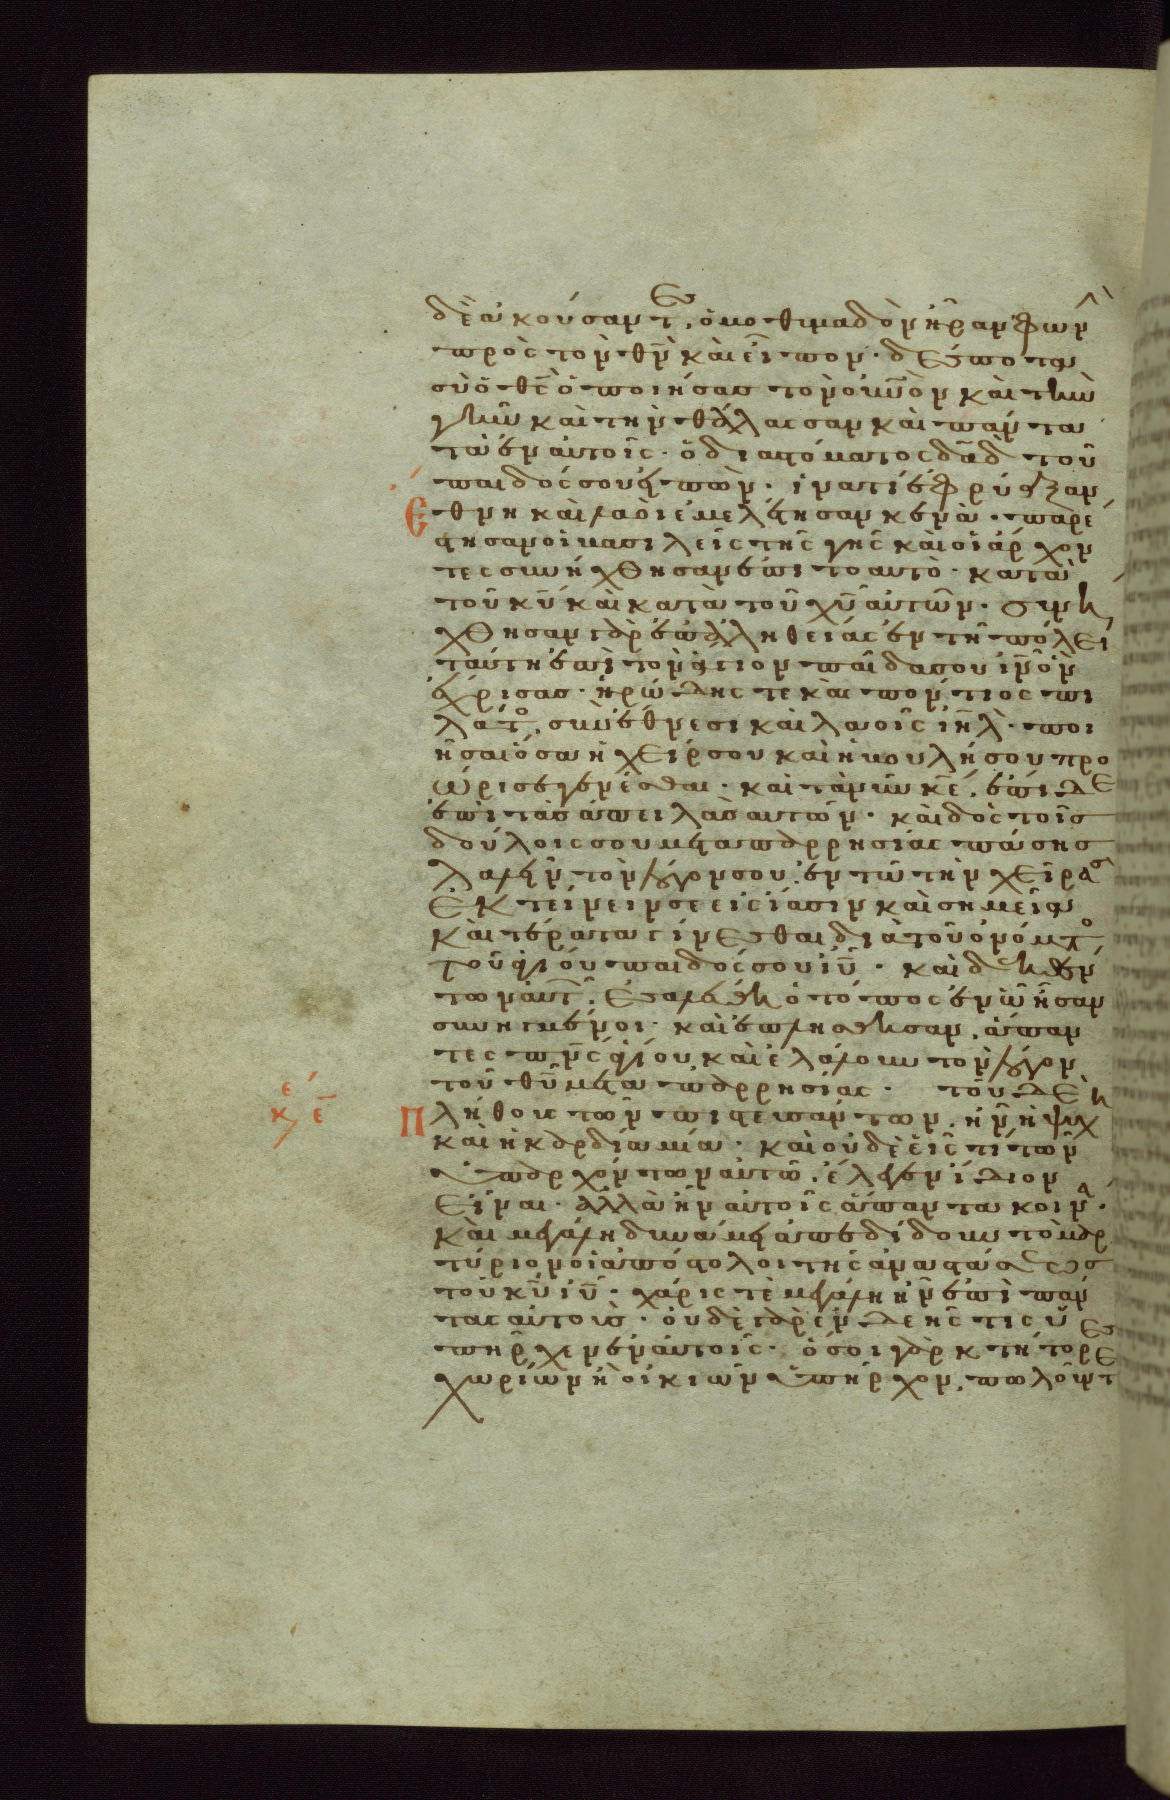 δὲ ἀκούσαντες, ὁμοθυμαδὸν ἦραν φωνὴν
πρὸς τὸν θν̅ καὶ εἶπον· δέσποτα
σὺ ὁ θς̅ ὁ ποιήσας τὸν οὐνὸν καὶ τὴν
γῆν καὶ τὴν θάλασσαν καὶ πάντα
τὰ ἐν αὐτοῖς· ὁ διὰ στόματος δα̅δ τοῦ
παιδός σου εἰπών· ἱνατί ἐφρύαξαν
ἔθνη καὶ λαοὶ ἐμελέτησαν κενά· παρέ
στησαν οἱ βασιλεῖς τῆς γῆς καὶ οἱ ἄρχον
τες συνήχθησαν ἐπὶ τὸ αὐτὸ· κατὰ
τοῦ κυ̅ καὶ κατὰ τοῦ χυ̅ αὐτῶν· συνή
χθησαν γὰρ ἐπ ἀληθείας ἐν τῇ πόλει
ταύτῃ ἐπὶ τὸν ἅγιον παῖδα σου ιν̅ ὃν
ἔχρισας· ἡρώδης τε καὶ πόντιος πι
λάτος, σὺν ἔθνεσι καὶ λαοῖς ιη̅λ· ποι
ῆσαι ὅσα ἡ χείρ σου καὶ ἡ βουλή σου προ
ώρισε γενέσθαι· καὶ τὰ νῦν κε̅, ἔπιδε
ἐπὶ τὰς ἀπειλὰς αὐτῶν· καὶ δὸς τοῖς
δούλοις σου μετὰ παρρησίας πάσης
λαλεῖν τὸν λόγον σου. ἐν τῷ τὴν χεῖρά σου
ἐκτείνειν σε εἰς ἴασιν καὶ σημεῖα
καὶ τέρατα γίνεσθαι διὰ τοῦ ὀνόματος
τοῦ ἁγίου παιδός σου ιυ̅· καὶ δεηθέν
των αὐτῶν, ἐσαλεύθη ὁ τόπος ἐν ᾧ ἦσαν
συνηγμένοι· καὶ ἐπλήσθησαν, ἅπαν
τες πν̅ς ἁγίου, καὶ ἐλάλουν τὸν λόγον
τοῦ θυ̅ μετὰ παρρησίας· τοῦ δὲ
ε κ ε̅ πλήθους τῶν πιστευσάντων, ἦν ἡ ψυχὴ
καὶ ἡ καρδία μία· καὶ οὐδὲ εἷς τι τῶν
ὑπαρχόντων αὐτῷ, ἔλεγεν ἴδιον
εἶναι· ἀλλ ἦν αὐτοῖς ἅπαντα κοινά·
καὶ μεγάλῃ δυνάμει ἀπεδίδουν τὸ μαρ
τύριον οἱ ἀπόστολοι τῆς ἀναστάσεως
τοῦ κυ̅ ιυ̅· χάρις τὲ μεγάλη ἦν ἐπὶ πάν
τας αὐτούς· οὐδὲ γὰρ ἐνδεής τις ὑ
πῆρχεν ἐν αὐτοῖς· ὅσοι γὰρ κτήτορες
χωρίων ἢ οἰκιῶν ὑπῆρχον, πωλοῦντες